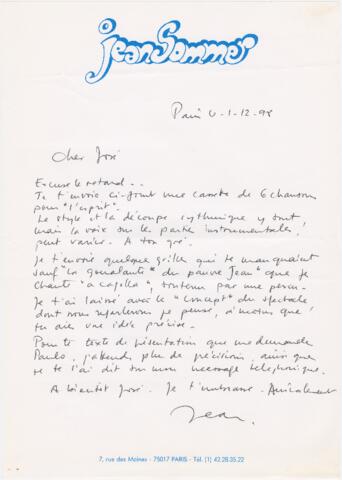 jean Sommer
Paris le 1-12-98
Cher José
Excuse le retard...
Je t'envoie ci-joint une cassette de 6 chansons
pour "l'esprit".
Le style et la découpe rythmique y sont
mais la voix sur les parties instrumentales,
peut varier. A ton gré.
Je t'envoie quelques grilles qui te manquaient
sauf "La goualante du pauvre Jean" que je
chante "a capella", soutenu par une percu.
Je t'ai laissé avec le "Concept" du spectacle
dont nous reparlerons je pense, à moins que
tu aies une idée précise.
Pour le texte de présentation que me demande
Paulo, j'attends plus de précisions, ainsi que
je te l'ai dit sur mon message téléphonique.
A bientôt José. Je t'embrasse. Amicalement
Jean.
7, rue des Moines - 75017 PARIS - Tél. (1) 42.28.35.22